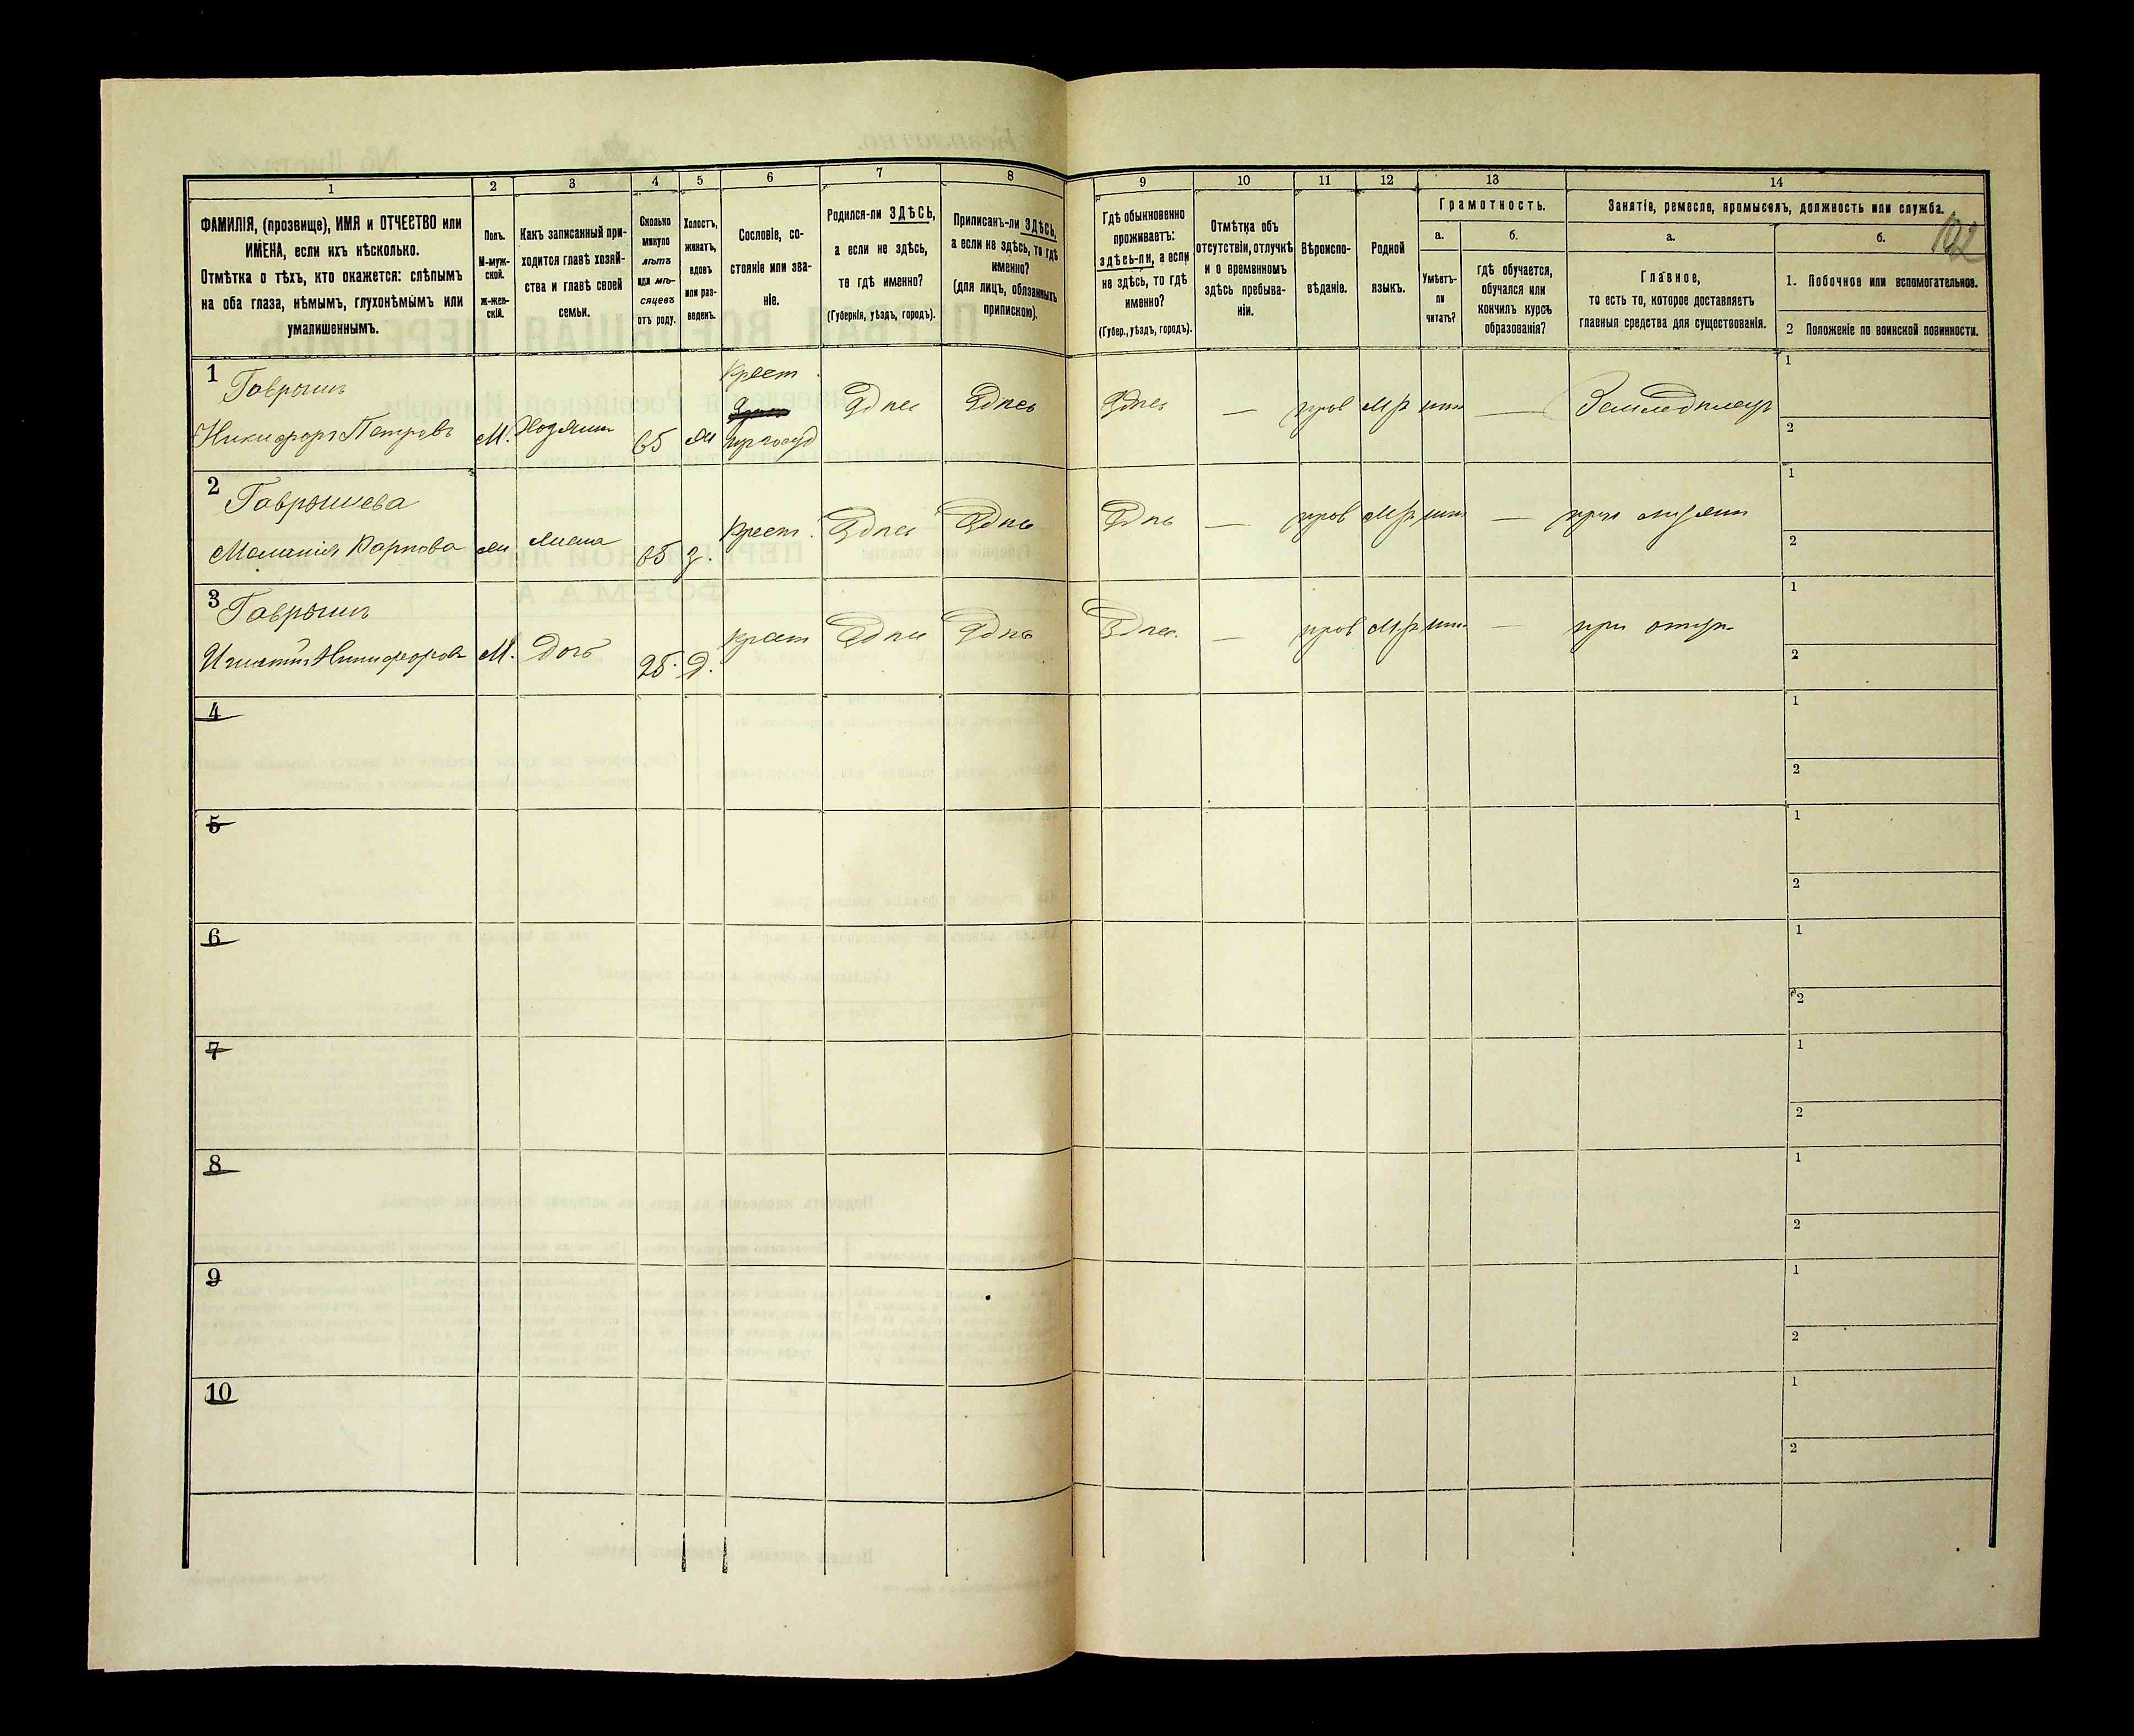 1
2
3
4
5
6
7
8
9
10
11
12
13
14
ФАМИЛІЯ, (прозвище), ИМЯ и ОТЧЕСТВО или
ИМЕНА, если ихъ нѣсколько.
Отмѣтка о тѣхъ, кто окажется: слѣпымъ
на оба глаза, нѣмымъ, глухонѣмымъ или
умалишеннымъ.
Полъ.
М-муж-
ской.
ж-жен-
скій.
Какъ записанный при-
ходится главѣ хозяй-
ства и главѣ своей
семьи.
Сколько
минуло
лѣтъ
или мѣ-
сяцевъ
отъ роду.
Холостъ,
женатъ,
вдовъ
или раз-
веденъ.
Сословіе, со-
стояніе или зва-
ніе.
Родился-ли ЗДѢСЬ,
а если не здѣсь,
то гдѣ именно?
(Губернія, уѣздъ, городъ).
Приписанъ-ли ЗДѢСЬ,
а если не здѣсь, то гдѣ
именно?
(для лицъ, обязанныхъ
припискою).
Гдѣ обыкновенно
проживаетъ:
здѣсь-ли, а если
не здѣсь, то гдѣ
именно?
(Губер., уѣздъ, городъ).
Отмѣтка объ
отсутствіи, отлучкѣ
и о временномъ
здѣсь пребыва-
ніи.
Вѣроиспо-
вѣданіе.
Родной
языкъ.
Грамотность.
а.
Умѣетъ-
ли
читать?
б.
гдѣ обучается,
обучался или
кончилъ курсъ
образованія?
Занятіе, ремесло, промыселъ, должность или служба.
102
а.
Главное,
то есть то, которое доставляетъ
главныя средства для существованія.
б.
1. Побочное или вспомогательное.
2 Положеніе по воинской повинности.
1
Никифоръ Петровъ М. Хозяинъ 65 Крест Здпсь Здпсь Здпсь — прав М р — 1
2
2 Гаврышева
Маланія Карпова жена 65 Крест. Здпсь Здпсь Здпсь — прав М р — при 1
2
3
Игнатій Никифоровъ М. 25. крест Здпсь Здпсь Здпсь. — прав М. р — при отцѣ 1
2
4 1
2
5 1
2
6 1
2
7 1
2
8 1
2
9 1
2
10 1
2